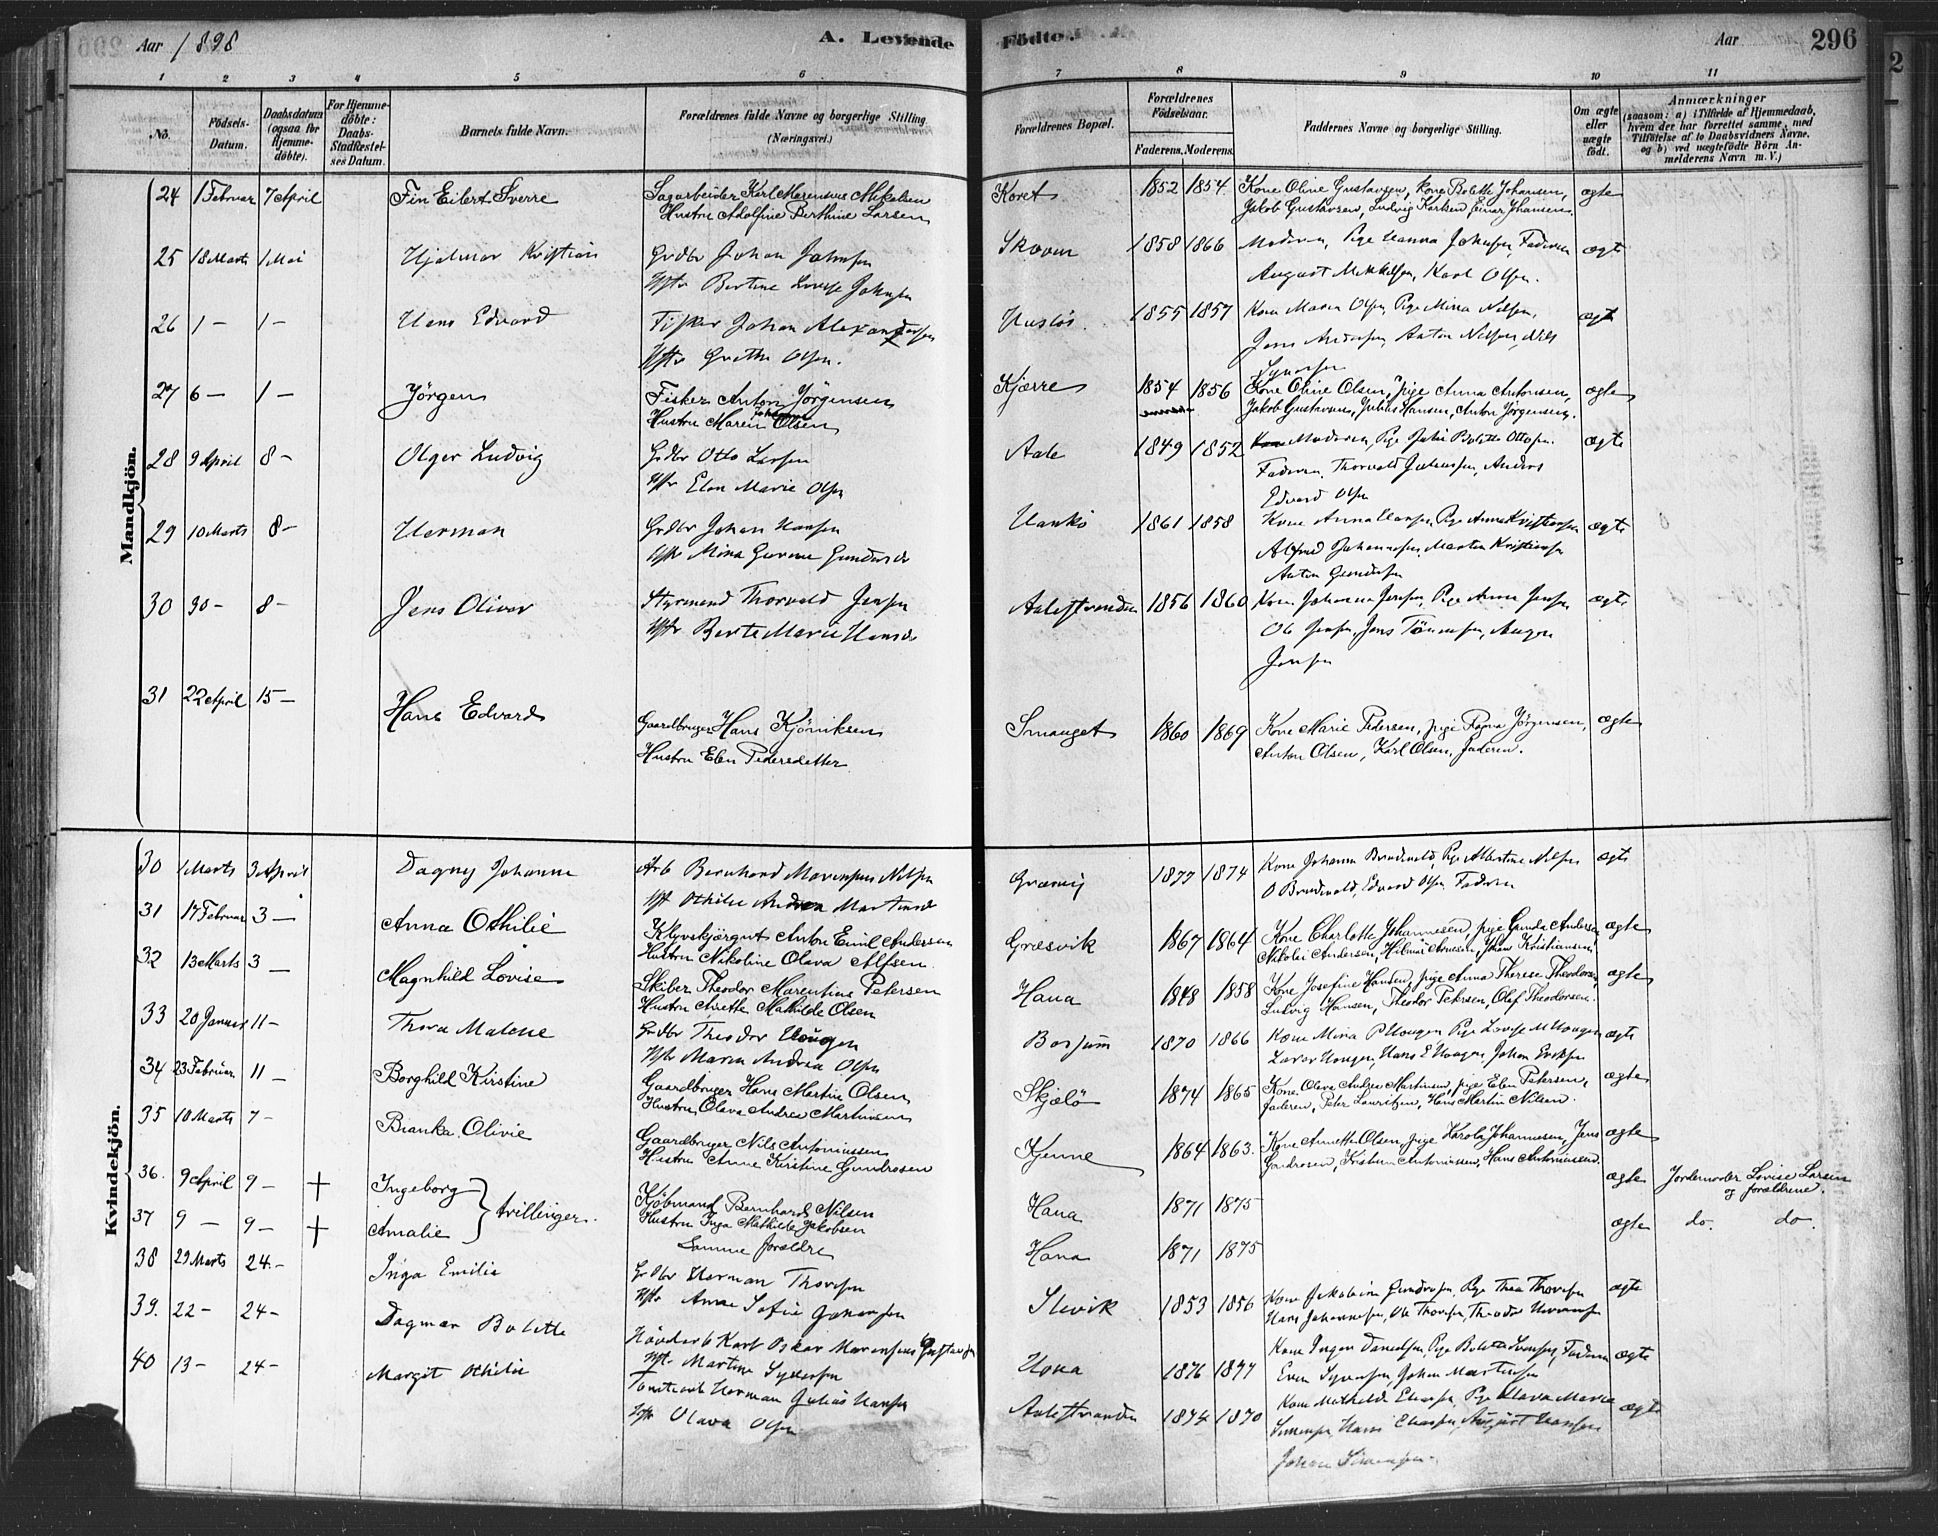 Aar 1898
A. Levende Fødte.
Aar 296
1 2 3 4 5 6 7 8 9 10 11
No. Fødsels-Datum. Daabsdatum (ogsaa for Hjemmedøbte). For Hjemmedøbte: Daabs-Stadfæstelses Datum. Barnets fulde Navn. Forældrenes fulde Navne og borgerlige Stilling (Næringsvei.) Forældrenes Bopæl. Forældrenes Fødselsaar. Faderens. Moderens. Faddernes Navne og borgerlige Stilling. Om ægte eller uægte født. Anmærkninger (saasom: a) i Tilfælde af Hjemmedaab, hvem der har forrettet samme, med Tilføielse af to Daabsvidners Navne, og b) ved uægtefødte Børn Anmelderens Navn m. V.)
Mandkjön.
24 1 Februar 7 April Fin Eilert Sverre Sagarbeider Karl Marenius Mikelsen Koret 1852 1854 Kone Oline Gustavsen, Kone Bolette Johansen, ægte
Hustru Adolfine Berthine Larsen Jakob Gustavsen, Ludvig Karlsen, Einar Johansen.
25 18 Marts 1 Mai Hjalmar Kristian Grdbr Johan Johnsen 1858 1866 Moderen, Pige Hanna Johnsen, Faderen ægte
Hstr Bertine Lovise Johnsen August Mikkelsen, Karl Olsen.
26 1 — 1 — Hans Edvard Fisker Johan Alexandersen Husløs 1855 1857 Kone Maren Olsen, Pige Mina Nilsen, ægte
Hstr Grethe Olsen. Jens Andersen, Anton Nilsen, Nils
Syversen
27 6 — 1 — Jörgen Fisker Anton Jörgensen Kjærre 1854 1856 Kone Oline Olsen, pige Anna Antonsen, ægte
Hustru Maren Johanne Olsen Jakob Gustavsen, Julius Hansen, Anton Jørgensen.
28 9 April 8 — Olger Ludvig Grdbr Otto Larsen Aale 1849 1852 Moderen, Pige Julie Bolette Ottosen. ægte
Hstr Elen Marie Olsen Faderen, Thorvald Johansen, Anders
Edvard Olsen
29 10 Marts 8 — Herman Grdbr Johan Hansen Hankö 1861 1858 Kone Anna Hansen, Pige Anna Kristiansen ægte
Hstr Mina Gurine Gundersd Alfred Johannesen, Martin Kristiansen
Anton Gundersen
30 30 — 8 — Jens Oliver Styrmand Thorvald Jensen Aalestranden 1856 1860 Kone Johanna Jensen, Pige Anna Jensen, ægte
Hstr Berte Marie Hansd Ole Jensen, Jens Tönnesen, August
Jensen
31 22 April 15 — Hans Edvard Gaardbruger Hans Kjöniksen Smauget 1860 1869 Kone Marie Pedersen, pige Ragna Jørgensen, ægte
Hustru Elen Pedersdatter Anton Olsen, Karl Olsen, faderen.
Kvindekjön.
30 1 Marts 3 April Dagny Johanne Arb Bernhard Marensius Nilsen Græsvig 1877 1874 Kone Johanna Brudevold, Pige Albertine Nilsen ægte
Hst Othilie Andrea Martinsd O Brudevold, Edvard Olsen Faderen
31 17 Februar 3 — Anna Othilie Anton Emil Andersen Græsvik 1867 1864 Kone Charlotte Johannesen, pige Gunda Andersen ægte
Hustru Nikoline Olava Alfsen. Nikolai Andersen, Hilmar Arnesen, Johan Kristiansen
32 13 Marts 3 — Magnhild Lovise Skiber Theodor Marentius Petersen Hana 1848 1858 Kone Josefine Hansen, pige Anna Therese Theodorsen, ægte
Hustru Anette Mathilde Olsen Ludvig Hansen, Theodor Petersen, Olaf Theodorsen.
33 20 Januar 11 — Thora Malene Grdbr Theodor Hougen Borsum 1870 1866 Kone Mina P Hougen Pige Lovise M Hougen ægte
Hstr Maren Andrea Olsen Hougen, Hans E Hougen, Johan Eriksen
34 23 Februar 11 — Borghild Kirstine Gaardbruger Hans Martin Olsen Skjælö 1874 1865 Kone Olava Andrea Martinsen, pige Elen Petersen, ægte
Hustru Olava Andrea Martinsen faderen, Peter Lauritzen, Hans Martin Nilsen.
35 10 Marts 7 — Bianka Olivie Gaardbruger Nils Antoniussen Kjenne 1864 1863. Kone Annette Olsen, pige Karola Johannesen, Jens ægte
Hustru Anne Kristine Gundrosen Gundrosen, Kristian Antoniussen, Hans Antoniussen.
36. 9 April 9 — + Ingeborg } trillinger. Kjöbmand Bernhard Nilsen Hana 1871 1875 ægte Jordemoder Lovise Larsen
Hustru Inga Mathilde Jakobsen og forældrene.
37 9 — 9 — + Amalie Samme forældre Hana 1871 1875 ægte do. do.
38 29 Marts 24 — Inga Emilie Grdbr Herman Thoresen Slevik 1853 1856 Kone Jakobine Gundrosen, Pige Thea Thoresen ægte
Hstr Anne Sofie Johansen Hans Johannesen, Ole Thoresen, Theodor Hermansen
39. 22 — 24 — Dagmar Bolette Karl Oskar Marensius Gustavsen Hona 1876 1877 Kone Inger Danielsen, Pige Bolette Svensen, Faderen ægte
Hst. Martine Syversen Even Syversen, Johan Martinsen
40 13 — 24 — Margit Othilie Herman Julius Hansen Aalestranden 1874 1870 Kone Mathilde Eliasen, Pige Olava Marie ægte
Hstr Olava Olsen Simensen, Hans Eliasen, August Hansen
Johan Simensen.